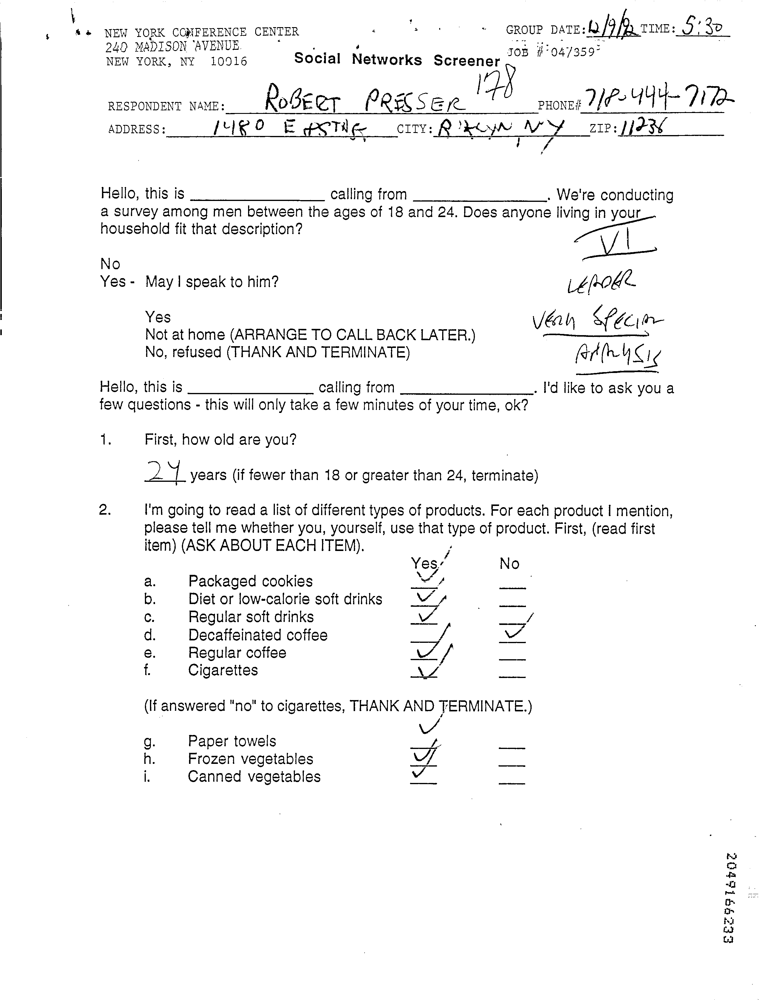 NEW YORK CONFERENCE CENTER GROUP DATE: TIME: 5:30
240 MADISON AVENUE JOB #: 047359
NEW YORK, NY 10016 Social Networks Screener
178
RESPONDENT NAME: ROBERT PRESSER PHONE# 718-444-7172
ADDRESS: 1480 E CITY: B'KLYN NY ZIP: 11236
Hello, this is ________ calling from ________. We're conducting
a survey among men between the ages of 18 and 24. Does anyone living in your
household fit that description?
VI
No
Yes - May I speak to him? LEADER
Yes VERY SPECIAL
Not at home (ARRANGE TO CALL BACK LATER.)
No, refused (THANK AND TERMINATE) ANALYSIS
Hello, this is ________ calling from ________. I'd like to ask you a
few questions - this will only take a few minutes of your time, ok?
1. First, how old are you?
24 years (if fewer than 18 or greater than 24, terminate)
2. I'm going to read a list of different types of products. For each product I mention,
please tell me whether you, yourself, use that type of product. First, (read first
item) (ASK ABOUT EACH ITEM).
Yes No
a. Packaged cookies
b. Diet or low-calorie soft drinks
c. Regular soft drinks
d. Decaffeinated coffee
e. Regular coffee
f. Cigarettes
(If answered "no" to cigarettes, THANK AND TERMINATE.)
g. Paper towels
h. Frozen vegetables
i. Canned vegetables
2049166233